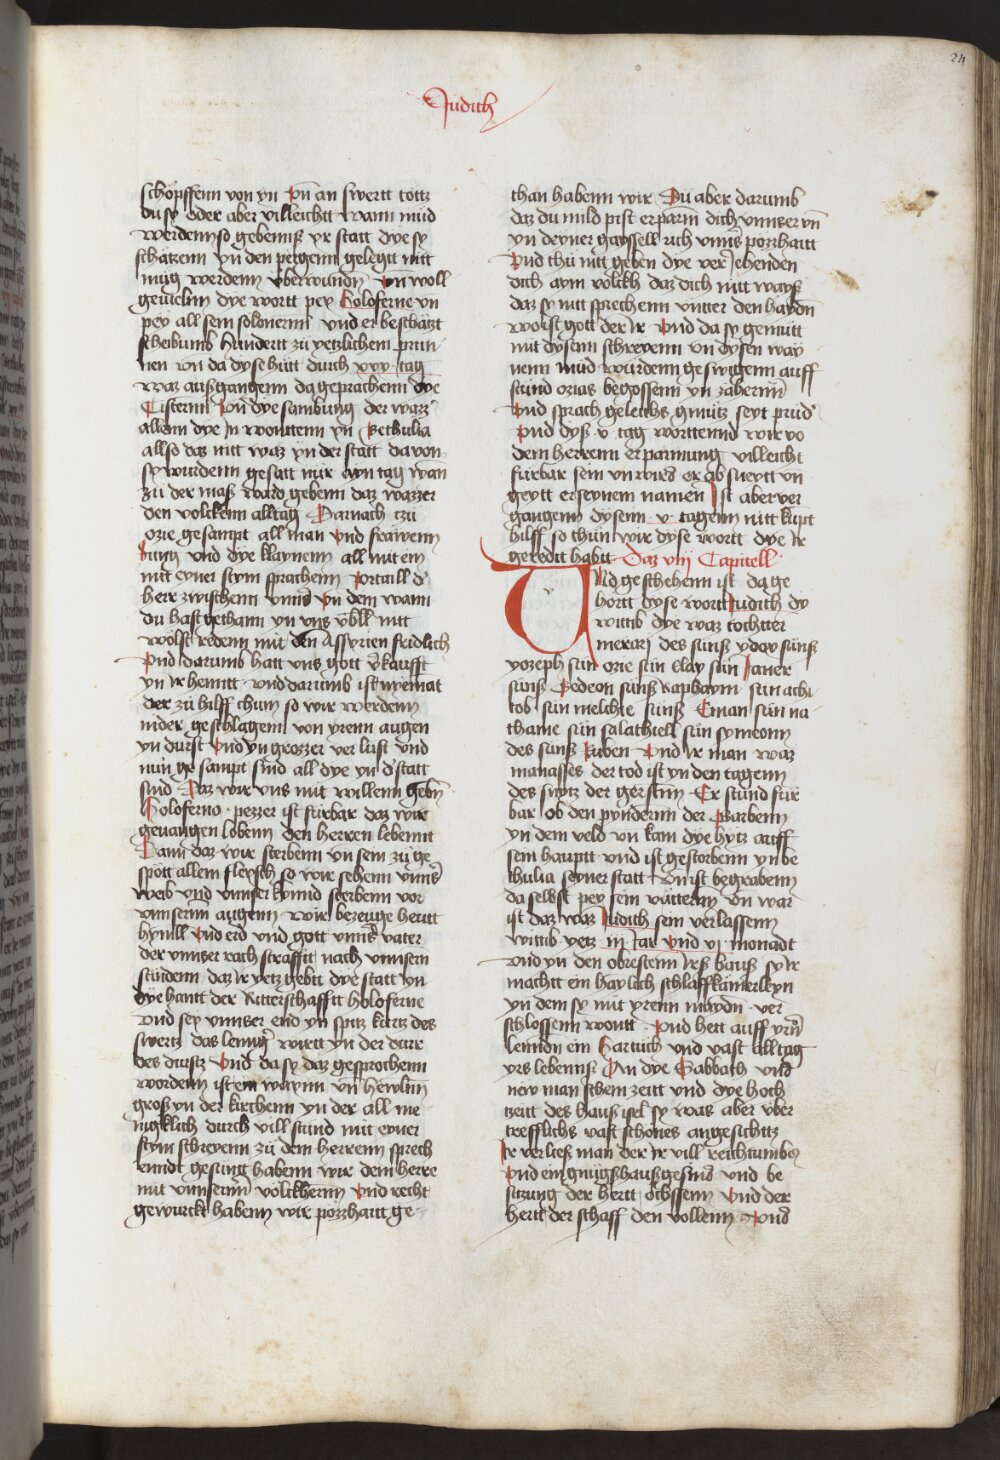 24
Judith
schöpffenn von yn Vn an swertt tottz
du sy oder aber villeichtt wann müd
werdenn so gebennß yr statt dye sy
schätzenn yn den pergenn gelegtt nitt
müg werdenn vberwundn Vn woll
geuielnn dye wortt pey Holoferne vn
pey all sein solonernn vnd er beschatzt
scheibumb hundertt zu yetzlichem prun
nen vn da dyse hütt durch xxx tag
waz außgangenn da geprachenn dye
Cisternn Vn dye samlung der wazz
allenn dye Jn wonttenn yn Bethulia
allso daz nitt waz yn der statt da von
sy wurdenn gesatt nür ayn tag wan
zü der maß ward gebenn daz wazzer
den volckenn alltag Darnach tzü
ozie gesampt all man Vnd frawenn
Jung vnd dye klaynenn all mit ein
mitt eyner stym sprachenn vrtaill d
herr zwischenn vnnd Vn dem wann
du hast gethann yn vns vbll nitt
wölst redenn mit den Assyrien fridlich
Vnd darumb hatt vns gott v'kaufft
yn Jr henntt vnd darumb ist nyemat
der zü hilff chum so wir werdenn
nider geschlagenn von yrenn augen
yn durst Vnd yn grozzer verlüst vnd
nün gesampt sind all dye yn d'statt
sind Daz wir vns mit willenn gebn
Holoferno pezzer ist fürbar daz wir
geuangen lobenn den herren lebenntt
Dann daz wir sterbenn vn sein zü ge
spött allem fleysch so wir sehenn vnns
weib vnd vnnser kynnd sterbenn vor
vnnsernn augenn wir bezeuge heutt
hymll Vnd erd vnd gott vnns vater
der vnnser rach strafftt nach vnnsern
sündenn daz Jr yetz gebtt dye statt yn
dye hantt der Ritterschafftt holoferne
vnd sey vnnser end yn spitz kurtz des
swertz das lenng wirtt yn der dürr
des durstz Vnd da sy daz gesprochenn
wordenn ist ein waynn vn hewlnn
groß yn der kirchenn yn der all me
nigklich durch vill stund mit eyner
stym schreyenn zü dem herrenn sprech
enndt gesüng habenn wir dem herre
mit vnnsernn völckhernn Vnd recht
gewürckt habenn wir pözzhaitt ge
than habenn wir Du aber darumb
daz du mild pist erparm dich vnnser vn
yn deyner gayssell rich vnns pozzhaitt
Vnd thü nitt geben dye ver Jehenden
dich aym volckh daz dich nitt wayß
daz sy nitt sprechenn vntter den haydn
wo ist gott der Jr Vnd da sy gemütt
mit dysenn schreyenn vn dysen way
nenn müd würdenn geswigenn auff
stünd ozias begossenn yn zähernn
Vnd sprach geleichs gmütz seyt prüd
Vnd dyß v tag worttennd wir vo
dem herrenn erparmung villeicht
fürbar sein vn wird er ab sneytt vn
geytt er seynem namen Jst aber ver
gangenn dysenn v tagenn nitt küpt
hilff so thün wir dyse wortt dye Jr
geredtt habtt Daz viij Capitell
Vnd geschehenn ist da ge
hortt dyse wortt Judith dy
wittib dye waz tochtter
merari des sünß ydox sünß
yozeph sün ozie sün elay sün Janer
sünß Gedeon sünß Raphaym sün achi
tob sün melchie sünß Enan sün na
thanie sün salathiell sün symeonn
des sünß Ruben Vnd Jr man waz
manasses der tod ist yn den tagenn
des snytz der gerstnn Er stünd für
bar ob den pynderin der garbenn
yn dem veld vn kam dye hytz auff
sein hauptt vnd ist gestorbenn yn be
thulia seyner statt Vn ist begrabenn
da selbst pey sein vätternn Vn war
ist daz waz Judith sein verlassenn
wittib yetz iij Jar Vnd vj monadt
vnd yn den obrestenn Jrß hauß sy Jr
machtt ein haylich schlaffkämerlleyn
yn dem sy mit yrenn maydn ver
schlossenn wontt Vnd hett auff yrn
lenndn ein hartüch vnd vast alltag
yrs lebennß An dye Sabbath vnd
new man schein zeitt vnd dye hoch
tzeitt des hauß isrl sy was aber vber
trefflichs vast schönes angesichttz
Jr verließ man der Jr vill reichtumbs
Vnd ein gnüigs haußgesind vnd be
sitzung der hertt öchssenn Vnd der
hertt der schaff den vollenn Vnd